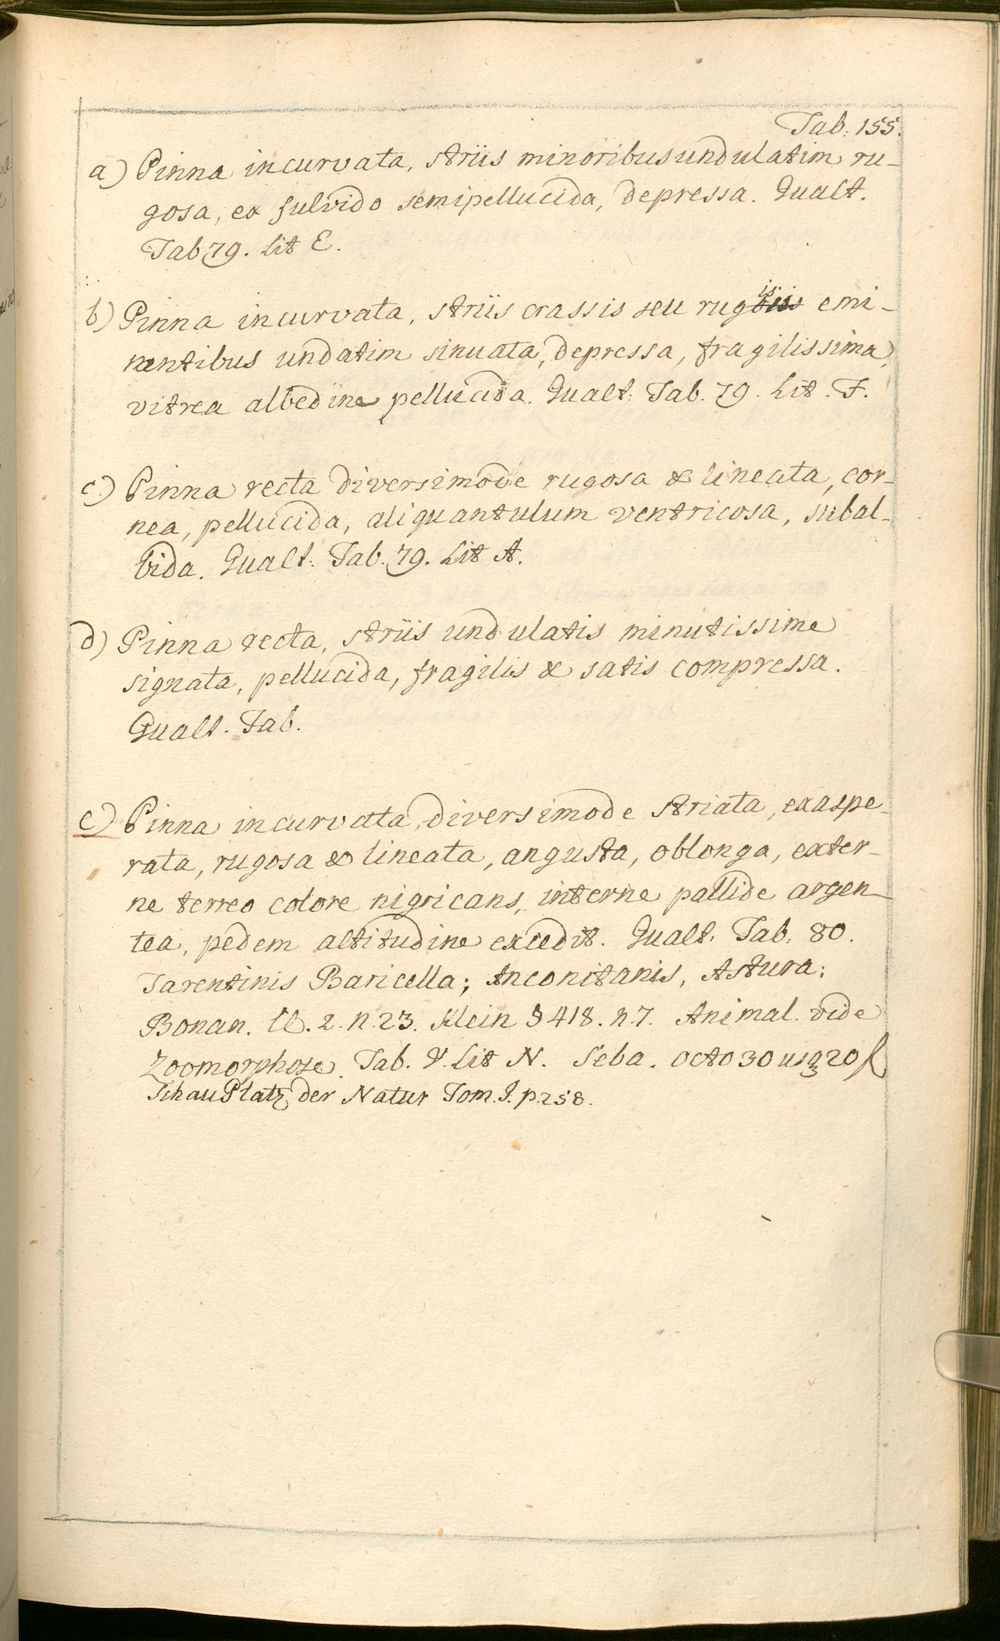 Tab: 155.
a) Pinna incurvata, striis minoribus undulatim ru-
gosa, ex fulvido semipellucida, depressa. Gualt.
Tab 79. Lit E.
b) Pinna incurvata, striis crassis seu rugis emi-
nentibus undatim sinuata, depressa, fragilissima,
vitrea albedine pellucida. Gualt: Tab. 79. Lit. F.
c) Pinna recta diversimode rugosa & lineata, cor-
nea, pellucida, aliquantulum ventricosa, subal-
bida. Gualt: Tab. 79. Lit A.
d) Pinna recta, striis undulatis minutissime
signata, pellucida, fragilis & satis compressa.
Gualt. Tab.
e) Pinna incurvata, diversimode striata, exaspe-
rata, rugosa & lineata, angusta, oblonga, exter-
ne terreo colore nigricans, interne pallide argen-
tea, pedem altitudine excedit. Gualt. Tab. 80.
Tarentinis Baricella; Anconitanis, Astura;
Bonan. Cl. 2. n. 23. Klein § 418. n. 7. Animal. vide
Zoomorphose. Tab. Lit N. Seba. octo 30 usq 20
SchauPlatz der Natur Tom. I. p. 258.